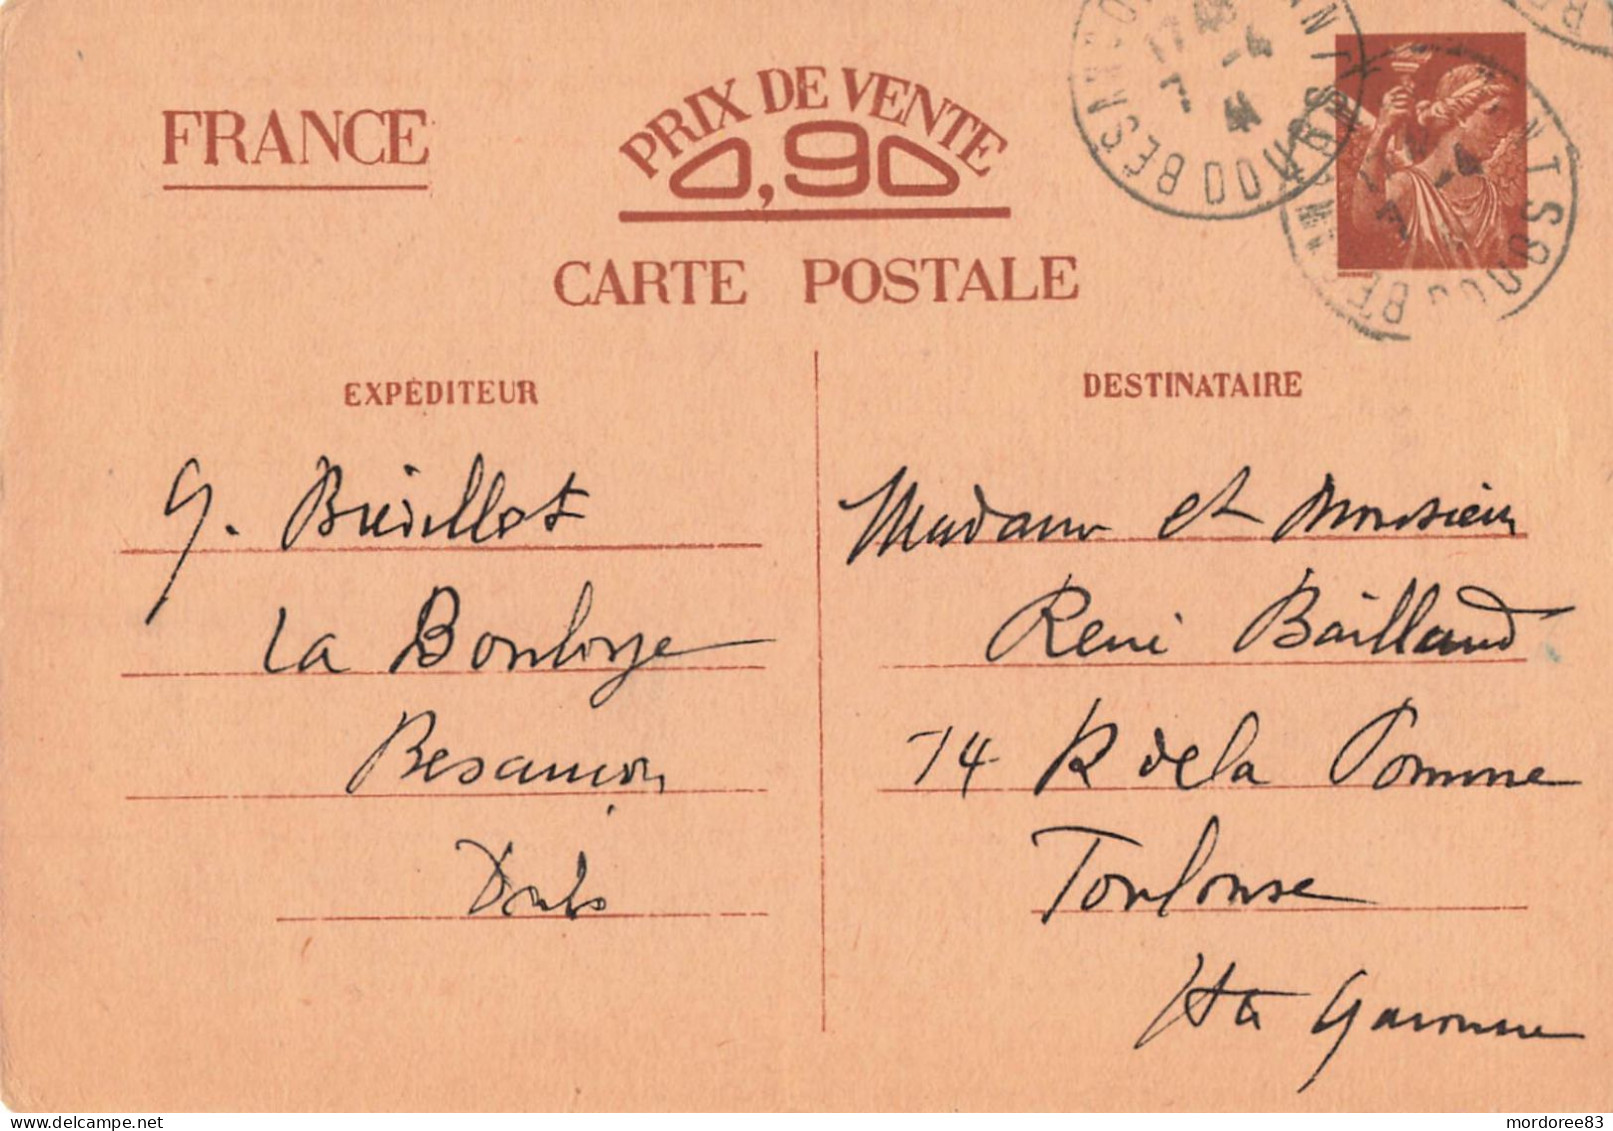 FRANCE
PRIX DE VENTE
0,90
CARTE POSTALE
EXPÉDITEUR
G. Brévillot
La Bouloye
Besançon
Doubs
DESTINATAIRE
Madame et Monsieur
René Baillaud
74 R de la Pomme
Toulouse
Hte Garonne
17 45
7 -4
41
DOUBS
mordoree83